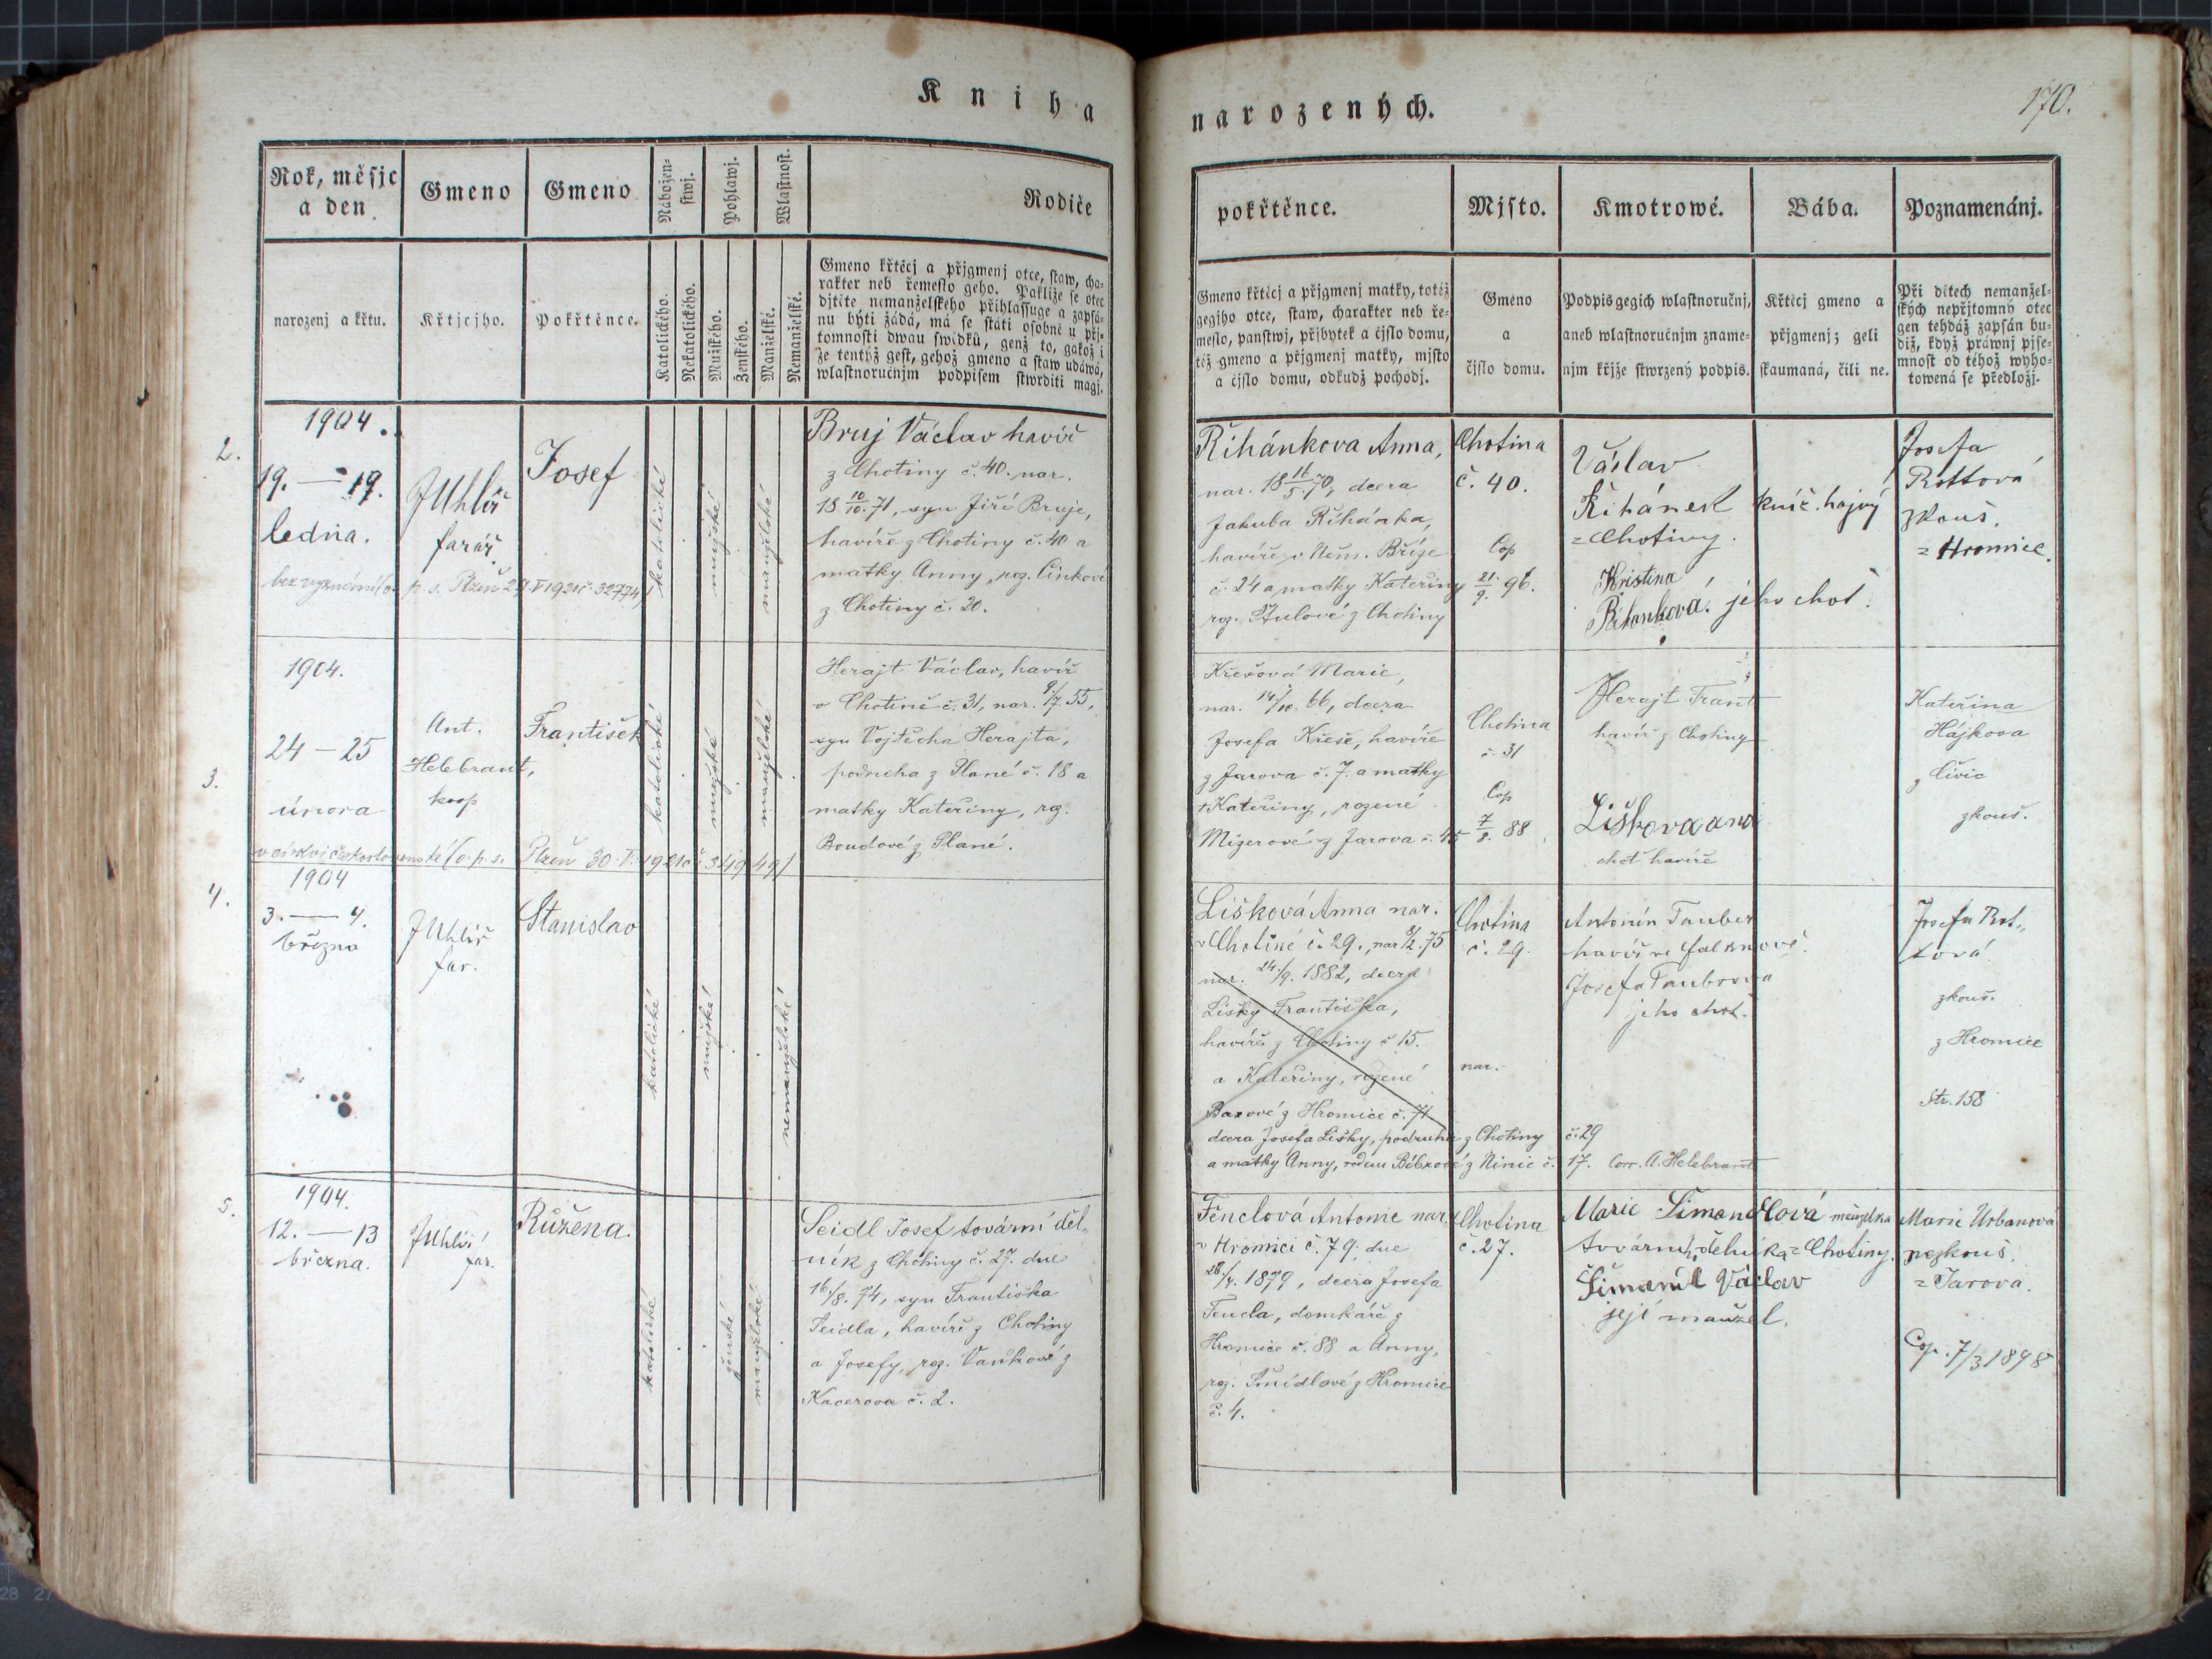 Kniha
narozených.
170.
Rok, měsjc
a den
narozenj a křtu.
Gmeno
Křtjcjho.
Gmeno
Pokřtěnce.
Nábožen-
stwj.
Katolického.
Nekatolického.
Pohlawj.
Mužského.
Ženského.
Wlastnost.
Manželské.
Nemanželské.
Rodiče
Gmeno křtěcj a přjgmenj otce, staw, cha-
rakter neb řemeslo geho. Pakliže se otec
djtěte nemanželského přihlassuge a zapsá-
nu býti žádá, má se státi osobně u přj-
tomnosti dwau swědků, genž to, gakož i
že tentýž gest, gehož gmeno a staw udáwá,
wlastnoručnjm podpisem stwrditi magj.
pokřtěnce.
Gmeno křtěcj a přjgmenj matky, totéž
gegjho otce, staw, charakter neb ře-
meslo, panstwj, přjbytek a čjslo domu,
též gmeno a přjgmenj matky, mjsto
a čjslo domu, odkudž pochodj.
Mjsto.
Gmeno
a
čjslo domu.
Kmotrowé.
Podpis gegich wlastnoručnj,
aneb wlastnoručnjm zname-
njm křjže stwrzený podpis.
Bába.
Křtěcj gmeno a
přjgmenj; geli
skaumaná, čili ne.
Poznamenánj.
Při dětech nemanžel-
ských nepřjtomný otec
gen tehdáž zapsán bu-
diž, když práwnj pjse-
mnost od téhož wyho-
towená se předložj.
2.
1904.
19. — 19.
ledna.
bez vyznání (o. p. s. Plzeň 2/9 V 1921 č. 32774)
JUhlíř
farář
Josef
katolické
mužské
manželské
Bruj Václav havíř
z Chotiny č. 40. nar.
18 10/10. 71, syn Jiří Bruje,
havíře z Chotiny č. 40 a
matky Anny, roz. Cinkové
z Chotiny č. 20.
Řihánkova Anna,
nar. 18 16/5. 70, dcera
Jakuba Řihánka,
havíře v Něm. Bříze
č. 24 a matky Kateřiny
roz. Štulové z Chotiny
Chotina
č. 40.
Cop
21./9. 96.
Václav
Řihánek kníž. hajný
z Chotiny.
Kristina
Řihonková. jeho choť.
Josefa
Rottová
zkouš.
z Hromice.
3.
1904.
24 — 25
února
v církvi československé (o. p. s. Plzeň 30. V. 1921 č. 341949)
Ant.
Helebrant,
koop
František
katolické
mužské
manželské
Herajt Václav, havíř
v Chotině č. 31, nar. 9/7. 55,
syn Vojtěcha Herajta,
podruha z Plané č. 18 a
matky Kateřiny, roz.
Boudové z Plané.
Křešová Marie,
nar. 14/10. 66, dcera
Josefa Křeše, havíře
z Jarova č. 7. a matky
+ Kateřiny, rozené
Migerové z Jarova č. 45
Chotina
č. 31
Cop
7/8. 88
Herajt Frant
havíř z Chotiny
Liškova ana
choť havíře
Kateřina
Hájkova
z Čivic
zkouš.
4.
1904
3. — 4.
března
JUhlíř
far.
Stanislav
katolické
mužské
nemanželské
Lišková Anna nar.
v Chotině č. 29., nar 8/2. 75
nar. 24./9. 1882, dcera
Lišky Františka,
havíře z Chotiny č 15.
a Kateřiny, rozené
Baxové z Hromice č. 71
dcera Josefa Lišky, podruha z Chotiny č. 29
a matky Anny, rodem Bébrové z Ninic č. 17. Corr. A. Helebrant
Chotina
č. 29.
nar.
Antonín Tauber
havíř ve Falknově.
Josefa Taubrova
jeho choť.
Josefa Rot„
tová
zkouš.
z Hromice
Str. 158
5.
1904.
12. — 13
března.
JUhlíř
far.
Růžena.
katolické
ženské
manželské
Seidl Josef tovární děl„
ník z Chotiny č. 27. dne
16/8. 74, syn Františka
Seidla, havíře z Chotiny
a Josefy, roz. Vaňkové z
Kacerova č. 2.
Fenclová Antonie nar.
v Hromici č. 79. dne
28./4. 1879, dcera Josefa
Fencla, domkáře z
Hromice č. 88 a Anny,
roz. Šmídlové z Hromice
č. 4.
Chotina
č. 27.
Marie Šimandlová manželka
továrního dělníka z Chotiny.
Šimandl Václav
její manžel.
Marie Urbanova
nezkouš.
z Jarova.
Cop. 7/3 1898